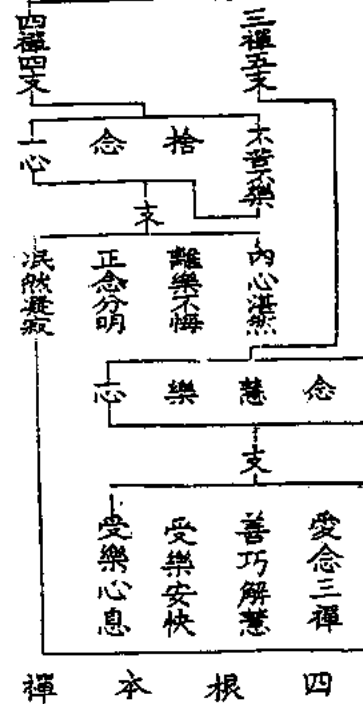 三禪五支
四禪四支
不苦不樂
捨
念
一心
支
內心湛然
離樂不悔
正念分明
泯然凝寂
念
慧
樂
一心
支
愛念三禪
善巧解慧
受樂安快
受樂心息
四根本禪